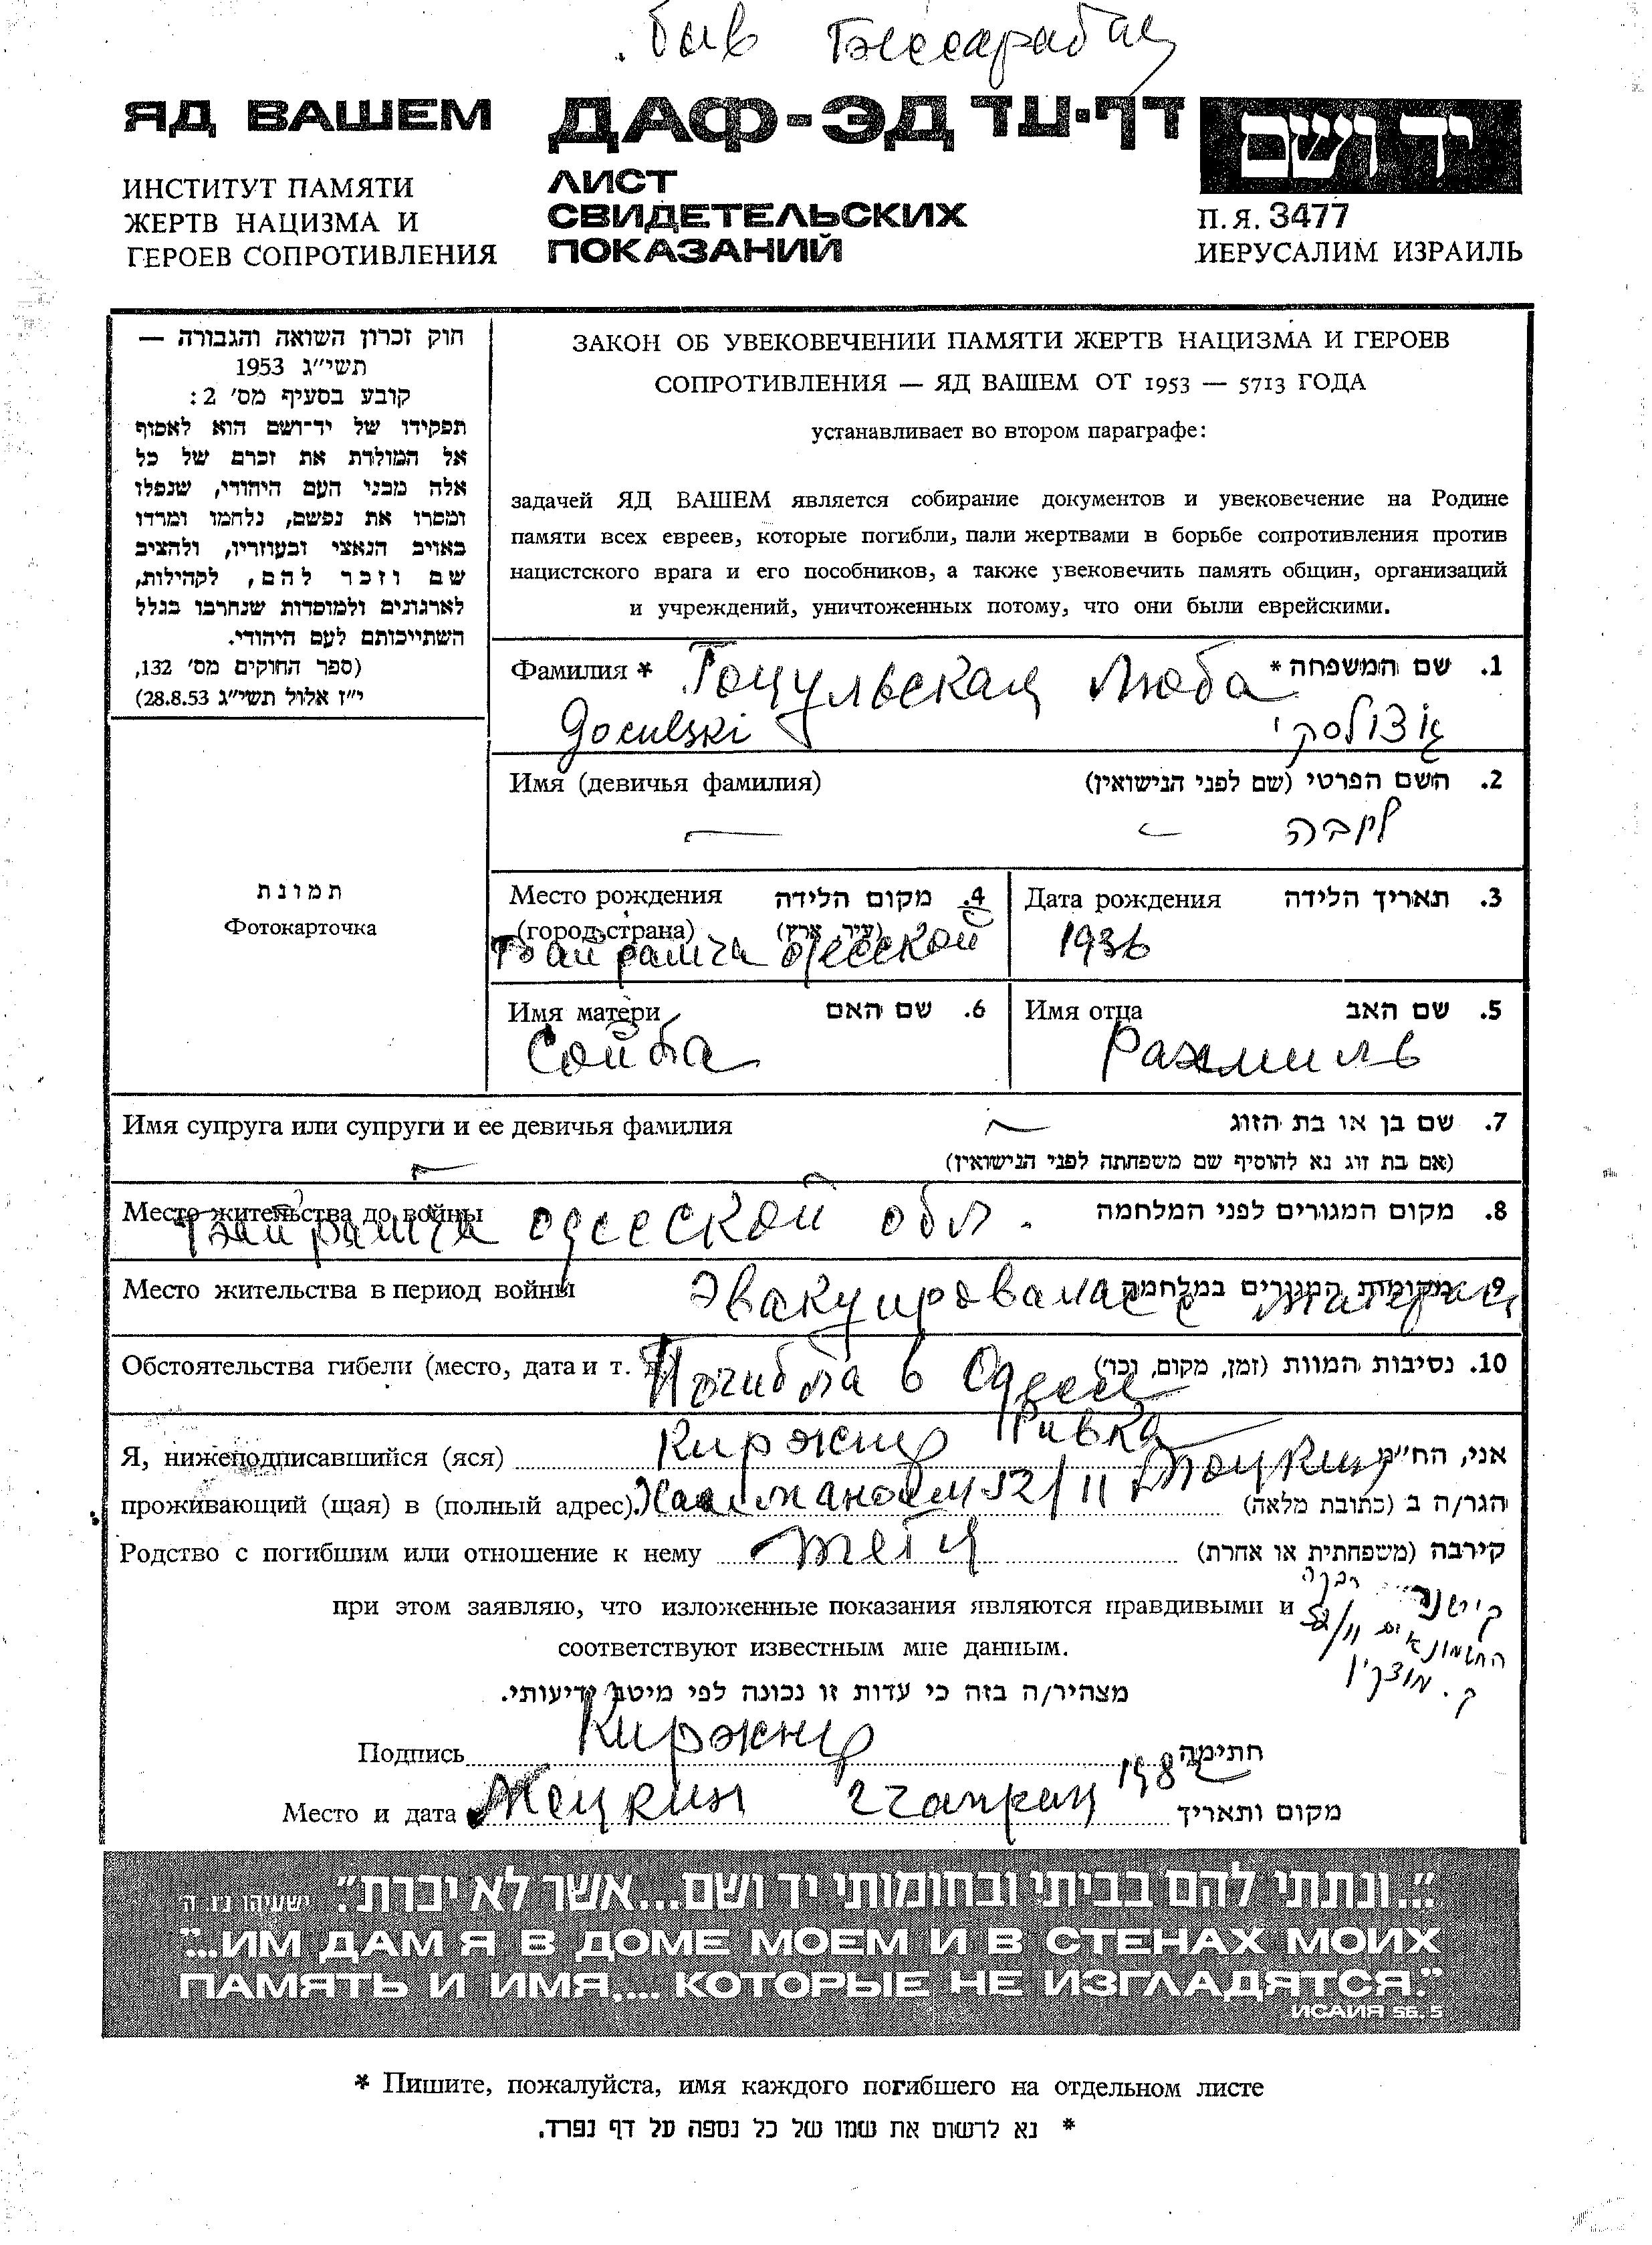 быв Бессарабия
ЯД ВАШЕМ
ИНСТИТУТ ПАМЯТИ
ЖЕРТВ НАЦИЗМА И
ГЕРОЕВ СОПРОТИВЛЕНИЯ
ДАФ-ЭД דף-עד
ЛИСТ
СВИДЕТЕЛЬСКИХ
ПОКАЗАНИЙ
יד ושם
П.Я. 3477
ИЕРУСАЛИМ ИЗРАИЛЬ
חוק זכרון השואה והגבורה —
תשי״ג 1953
קובע בסעיף מס׳ 2:
תפקידו של יד־ושם הוא לאסוף
אל המולדת את זכרם של כל
אלה מבני העם היהודי, שנפלו
ומסרו את נפשם, נלחמו ומרדו
באויב הנאצי ובעוזריו, ולהציב
שם וזכר להם, לקהילות,
לארגונים ולמוסדות שנחרבו בגלל
השתייכותם לעם היהודי.
(ספר החוקים מס׳ 132,
י״ז אלול תשי״ג 28.8.53)
ЗАКОН ОБ УВЕКОВЕЧЕНИИ ПАМЯТИ ЖЕРТВ НАЦИЗМА И ГЕРОЕВ
СОПРОТИВЛЕНИЯ — ЯД ВАШЕМ ОТ 1953 — 5713 ГОДА
устанавливает во втором параграфе:
задачей ЯД ВАШЕМ является собирание документов и увековечение на Родине
памяти всех евреев, которые погибли, пали жертвами в борьбе сопротивления против
нацистского врага и его пособников, а также увековечить память общин, организаций
и учреждений, уничтоженных потому, что они были еврейскими.
Фамилия * Гоцульская Люба 1. שם המשפחה*
Goculski גוצולסקי
Имя (девичья фамилия) 2. השם הפרטי (שם לפני הנישואין)
— — ליובה
תמונת
Фотокарточка
Место рождения 4. מקום הלידה
(город, страна) (עיר, ארץ)
Байрамча одесской
Дата рождения 3. תאריך הלידה
1936
Имя матери 6. שם האם
Сойба
Имя отца 5. שם האב
Рахмиль
Имя супруга или супруги и ее девичья фамилия — 7. שם בן או בת הזוג
— (אם בת זוג נא להוסיף שם משפחתה לפני הנישואין)
Место жительства до войны 8. מקום המגורים לפני המלחמה
Байрамча одесской обл.
Место жительства в период войны Эвакуировалась с матерью 9. מקומות המגורים במלחמה
Обстоятельства гибели (место, дата и т. д.) Погибла в Одессе 10. נסיבות המוות (זמן, מקום, וכו׳)
Я, нижеподписавшийся (яся) Киржнер Ривка אני, הח״מ
проживающий (щая) в (полный адрес) 52/11 Моцкин הגר/ה ב (כתובת מלאה)
Родство с погибшим или отношение к нему тетя קירבה (משפחתית או אחרת)
רבקה
при этом заявляю, что изложенные показания являются правдивыми и
соответствуют известным мне данным.
החשמונאים 11/52
ק. מוצקין
מצהיר/ה בזה כי עדות זו נכונה לפי מיטב ידיעותי.
Подпись Киржнер חתימה
Место и дата Моцкин 22 апреля 1982 מקום ותאריך
״...ונתתי להם בביתי ובחומותי יד ושם...אשר לא יכרת״. ישעיהו נ״ו. ה׳
„...ИМ ДАМ Я В ДОМЕ МОЕМ И В СТЕНАХ МОИХ
ПАМЯТЬ И ИМЯ.... КОТОРЫЕ НЕ ИЗГЛАДЯТСЯ.”
ИСАИЯ 56.5
* Пишите, пожалуйста, имя каждого погибшего на отдельном листе
* נא לרשום את שמו של כל נספה על דף נפרד.